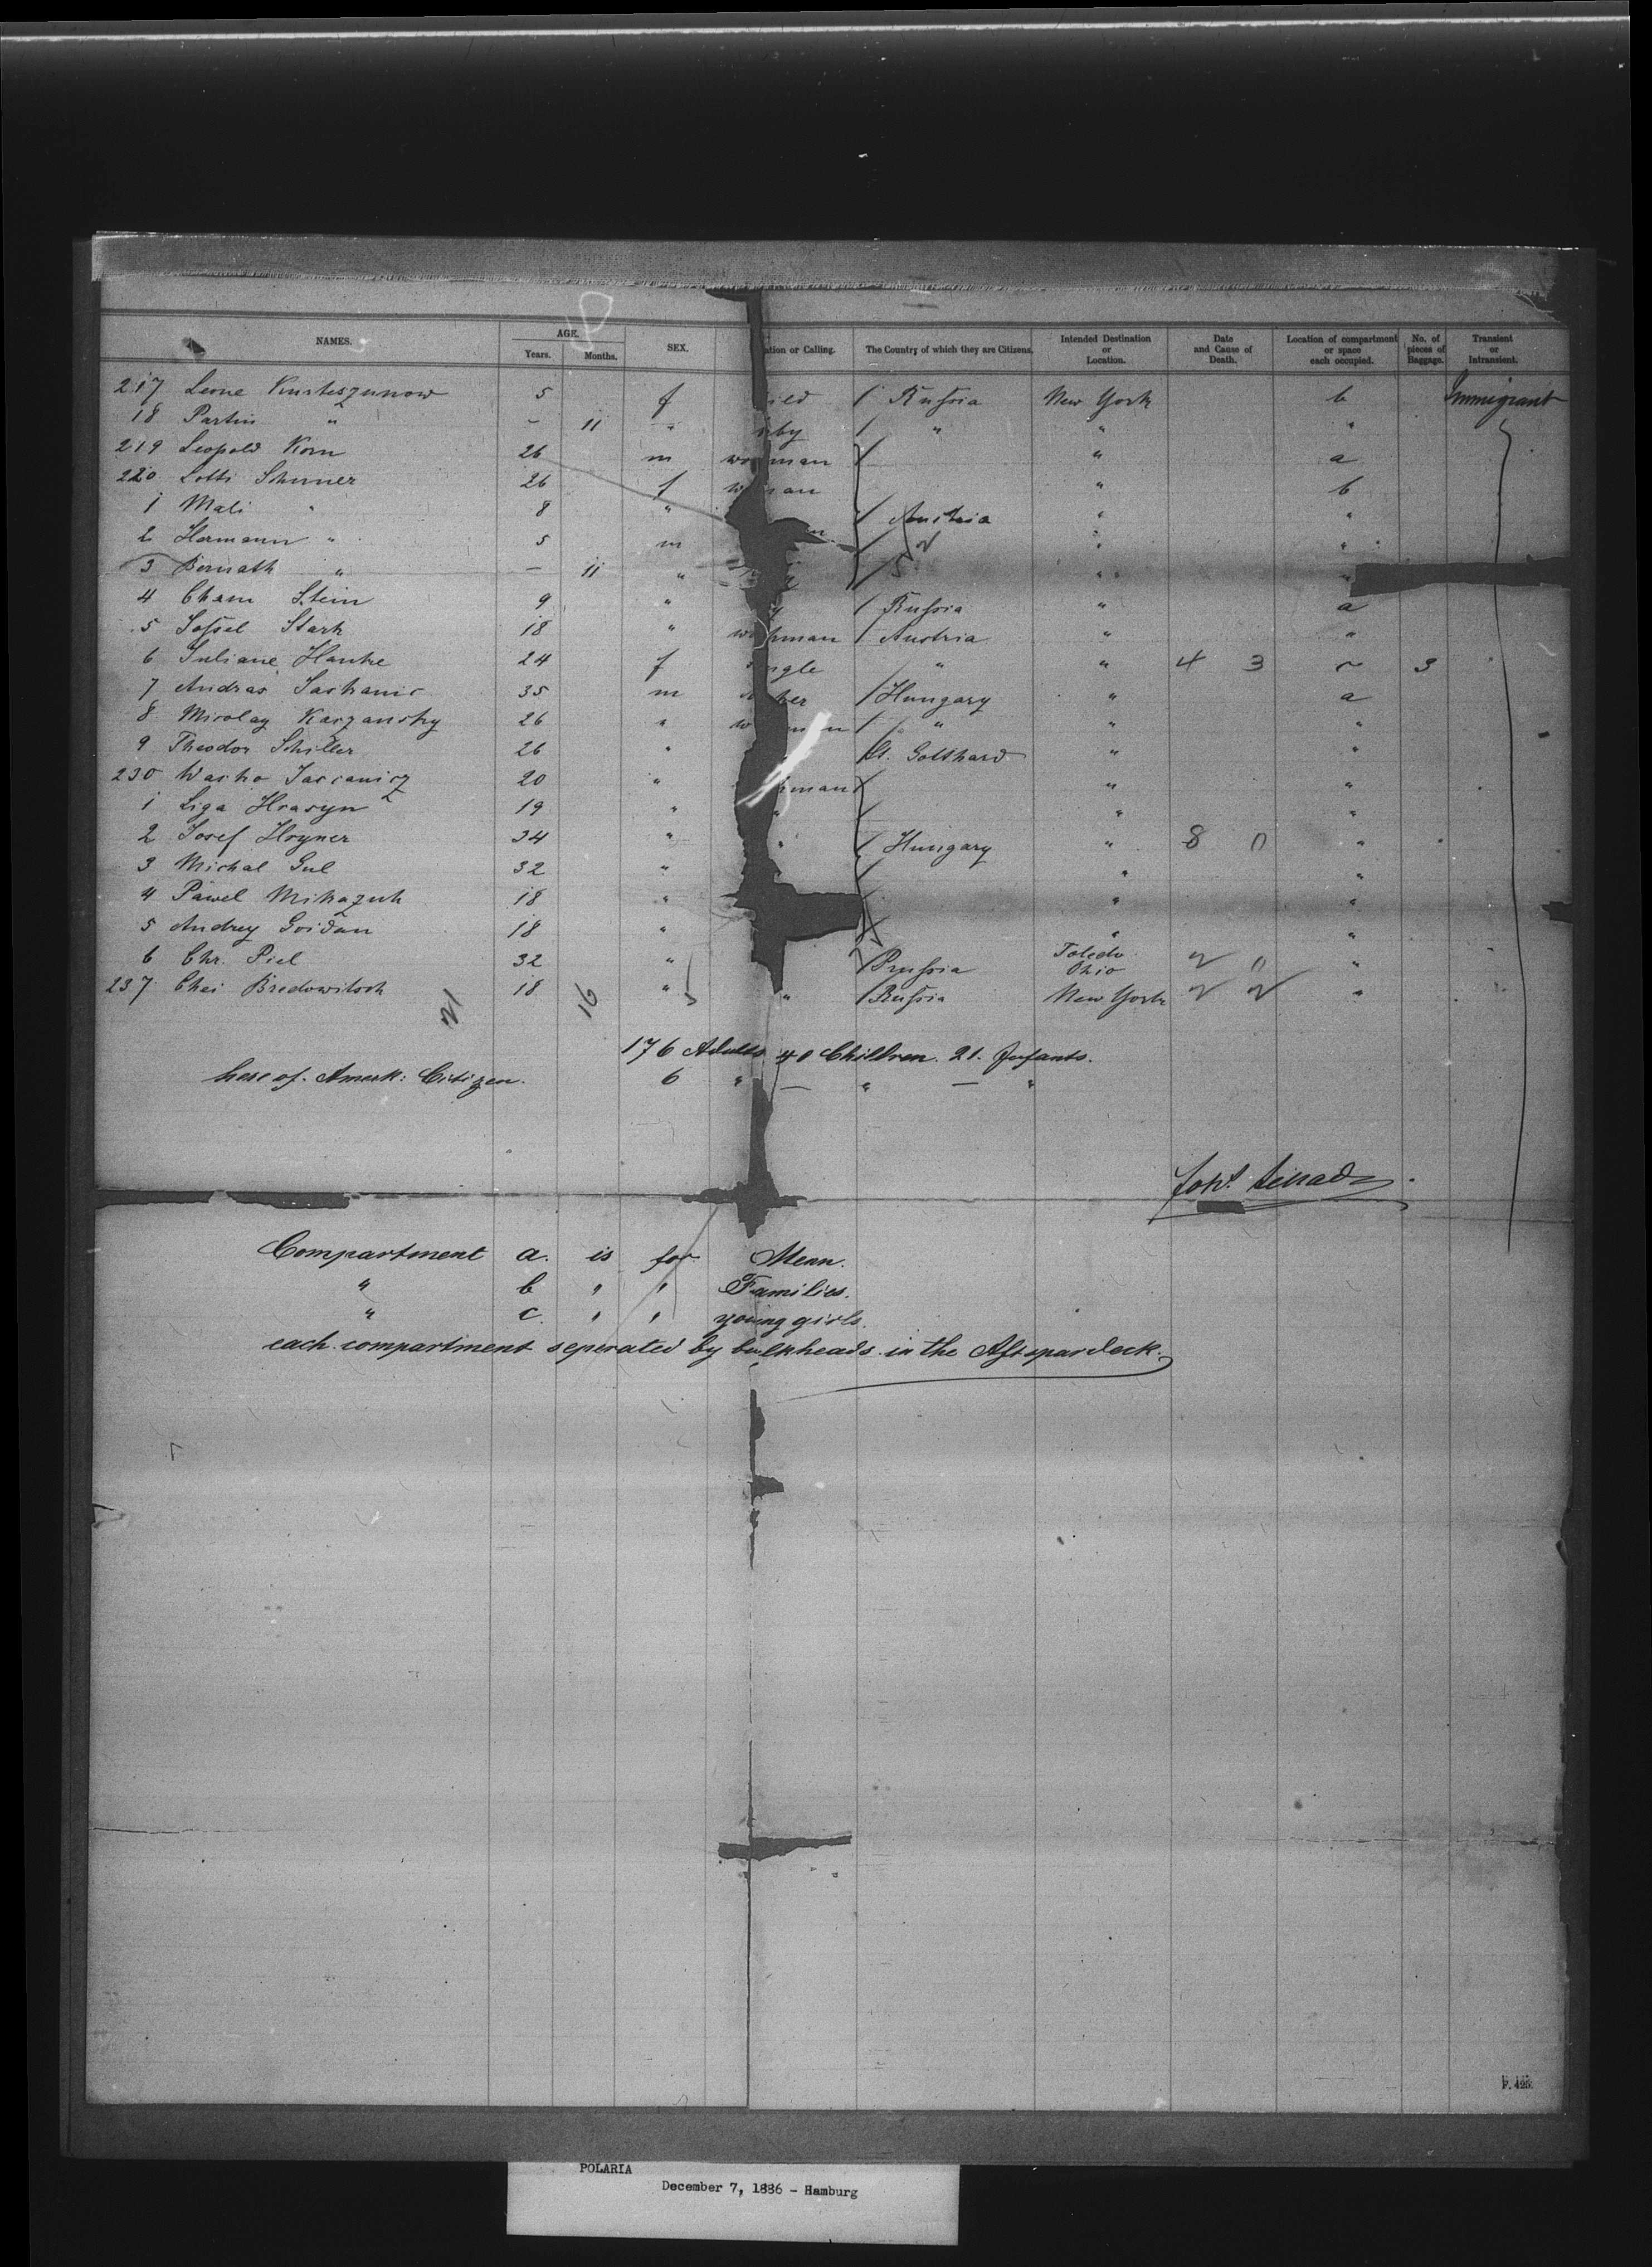 NAMES. AGE. Years. Months. SEX. ation or Calling. The Country of which they are Citizens. Intended Destination or Location. Date and Cause of Death. Location of compartment or space each occupied. No. of pieces of Baggage. Transient or Intransient.
217 Leone 5 f ild / Russia New York b Immigrant
18 " - 11 " by / " " "
219 Leopold Korn 26 m wo man / " a
220 Lotti 26 f w an " b
1 Mali " 8 " / Austria " "
2 Hermann " 5 m / " "
3 Bernath " - 11 " / 5 " "
4 Cham Stein 9 " y / Russia " a
5 Sossel Stark 18 " wo kman / Austria " "
6 Juliane Hanke 24 f ngle / " " 4 3 3
7 Andras 35 m / Hungary " a
8 26 " w n / " " "
9 Theodor Schiller 26 " St. Gotthard " "
230 Wasko 20 " kman / " "
1 Liga Hrasyn 19 " " / " "
2 Josef Hryner 34 " " / Hungary " 8 0 "
3 Michal Gul 32 " / " "
4 Pawel 18 " / " "
5 Andrey Goidan 18 " / " "
6 Chr. Piel 32 " / Prussia Toledo Ohio "
237 Chai Bredowitsch 18 " " / Russia New York "
21 16
176 Adults 40 Children. 21. Infants.
here of. Amerk: Citizen. 6 " — " — "
Compartment a. is for Menn.
" b " " Families.
" c. " " young girls.
each compartment seperated by bulkheads in the Aft spardeck.
F. 425.
POLARIA
December 7, 1886 - Hamburg